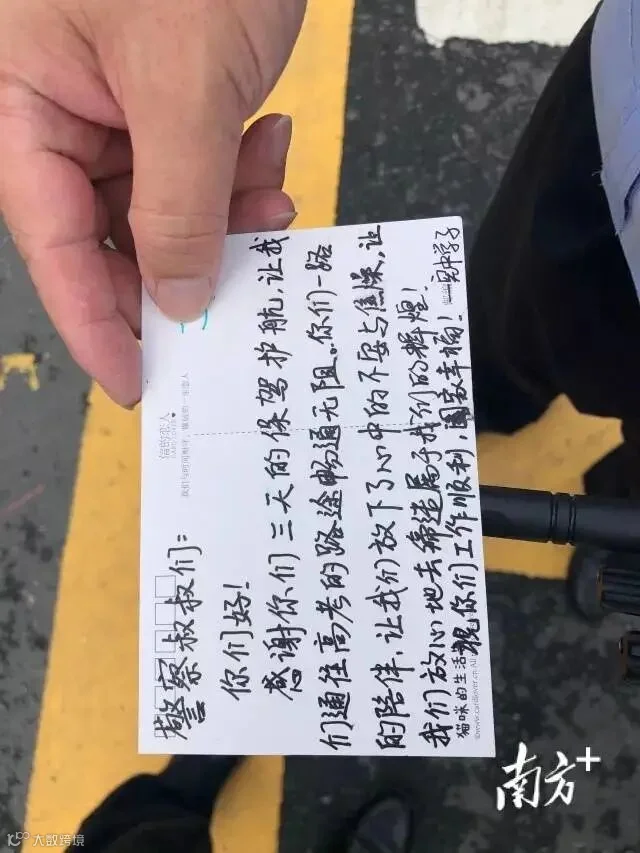 警察叔叔们：
你们好！
感谢你们三天的保驾护航，让我
们通往高考的路途畅通无阻。你们一路
的陪伴，让我们放下了心中的不安与焦躁，让
我们放心地去缔造属于我们的辉煌！
祝你们工作顺利，阖家幸福！
中学子
信的恋人
猫咪的生活
南方+
大数跨境